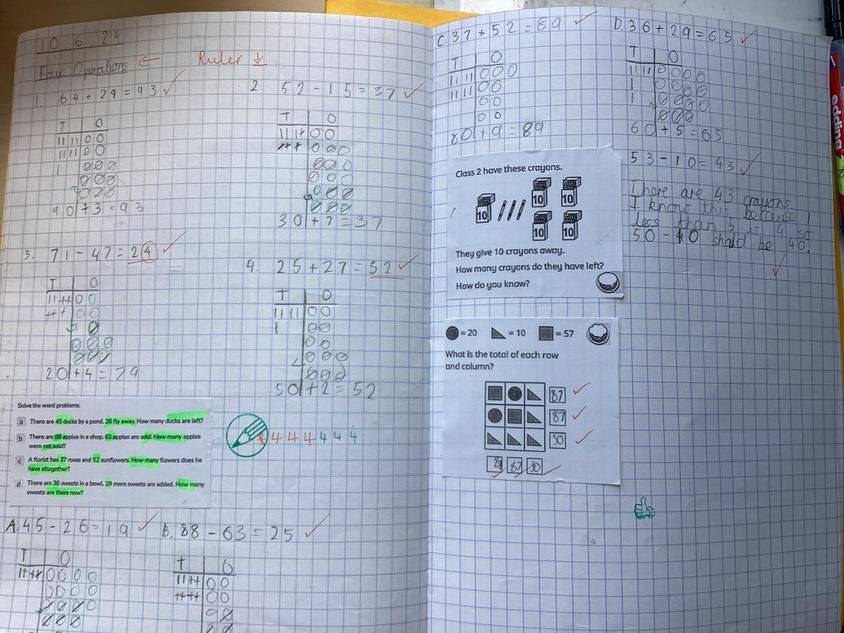 10.6.24
Four Operations ← Ruler ↓
1. 64+29=93
T O
90+3=93
2 52-15=37
T O
30+7=37
3. 71-47=24
T O
20+4=24
4. 25+27=52
T O
50+2=52
Solve the word problems.
a There are 45 ducks by a pond. 26 fly away. How many ducks are left?
b There are 88 apples in a shop. 63 apples are sold. How many apples
were not sold?
c A florist has 37 roses and 52 sunflowers. How many flowers does he
have altogether?
d There are 36 sweets in a bowl. 29 more sweets are added. How many
sweets are there now?
4 4 4 4 4 4 4
A. 45-26=19
T O
b. 88-63=25
T O
C. 37+52=89
T O
80+9=89
D. 36+29=65
T O
60+5=65
Class 2 have these crayons.
10 10 10
10 10
They give 10 crayons away.
How many crayons do they have left?
How do you know?
53-10=43
There are 43 crayons
I know this because 1
less than 5 is 4 so
50-10 shold be 40.
= 20 = 10 = 57
What is the total of each row
and column?
87
87
30
87 87 30
edding